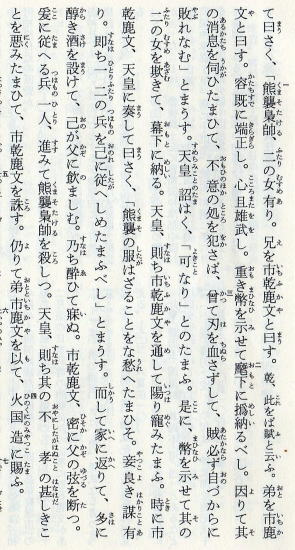 て曰さく、「熊襲梟帥、二の女有り。兄を市乾鹿文と曰す。乾、此をば賦と云ふ。弟を市鹿
文と曰す。容既に端正し。心且雄武し。重き幣を示せて麾下に撝納るべし。因りて其
の消息を伺ひたまひて、不意の処を犯さば、曾て刃を血さずして、賊必ず自づからに
敗れなむ」とまうす。天皇詔はく、「可なり」とのたまふ。是に、幣を示せて其の
二の女を欺きて、幕下に納る。天皇、則ち市乾鹿文を通して陽り寵みたまふ。時に市
乾鹿文、天皇に奏して曰さく、「熊襲の服はざることをな愁へたまひそ。妾良き謀有
り。即ち一二の兵を己に従へしめたまふべし」とまうす。而して家に返りて、多に
醇き酒を設けて、己が父に飲ましむ。乃ち酔ひて寐ぬ。市乾鹿文、密に父の弦を断つ。
爰に従へる兵一人、進みて熊襲梟帥を殺しつ。天皇、則ち其の不孝の甚しきこ
とを悪みたまひて、市乾鹿文を誅す。仍りて弟市鹿文を以て、火国造に賜ふ。